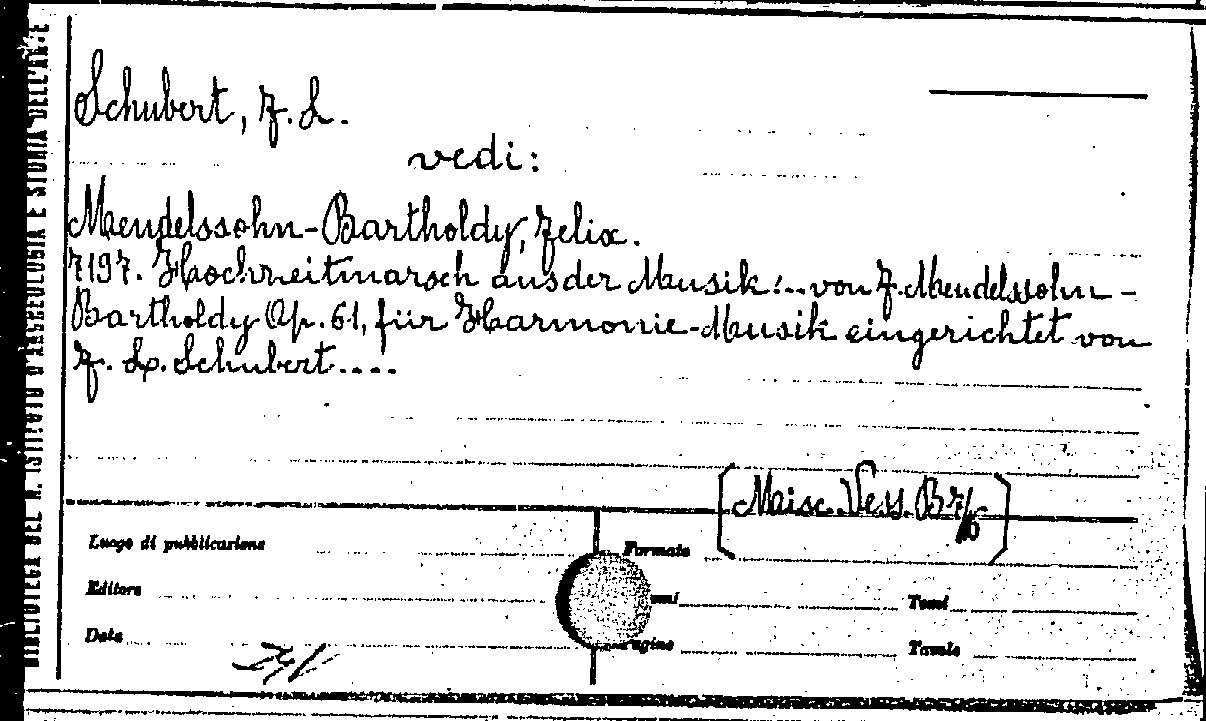 Schubert, F. L.
vedi:
Mendelssohn-Bartholdy, Felix.
7197. Hochzeitmarsch aus der Musik:.. von F. Mendelssohn-
Bartholdy Op. 61, für Harmonie-Musik eingerichtet von
F. L. Schubert....
[Misc. Vess. B
Luogo di pubblicazione
Formato
Editore
Tomi
Data
Pagine
Tavole
BIBLIOTECA DEL R. ISTITUTO D'ARCHEOLOGIA E STORIA DELL'ARTE